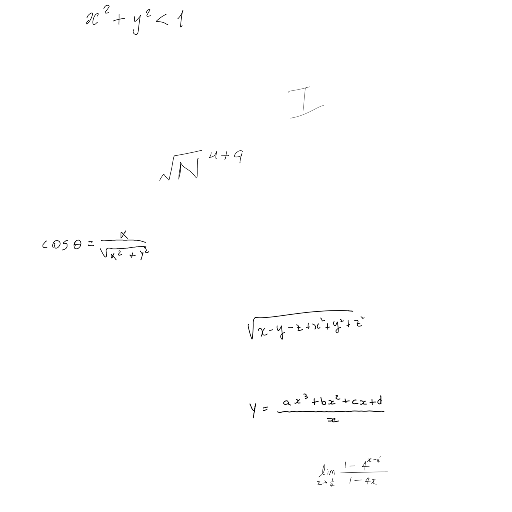 x² + y² < 1
I
√N^{u+9}
cos θ = x / √(x² + y²)
√(x - y - z + x² + y² + z²)
Y = (ax³ + bx² + cx + d) / x
lim (1 - 4 / (1 - 4x